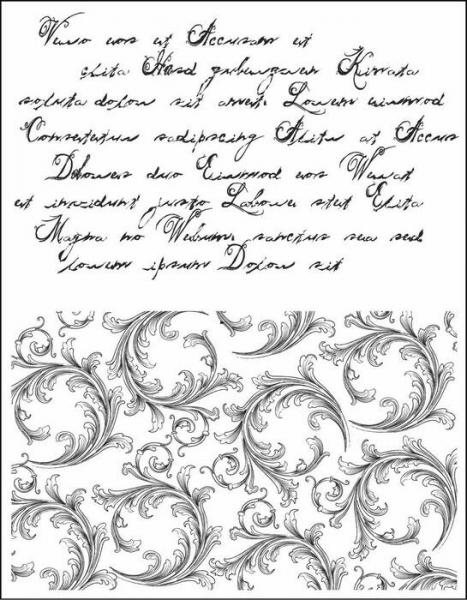 Vero eos et Accusam et
clita Kasd gubergren Kimata
soluta dolou sit amet. Lorem eiumod
Consetetur sadipscing Alitu at Accus
Dolores duo Eiusmod eos Wevat
et invidunt justo Labore stet Clita
Magna no Rebum. sanctus sea sed
lorem ipsum Dolou sit